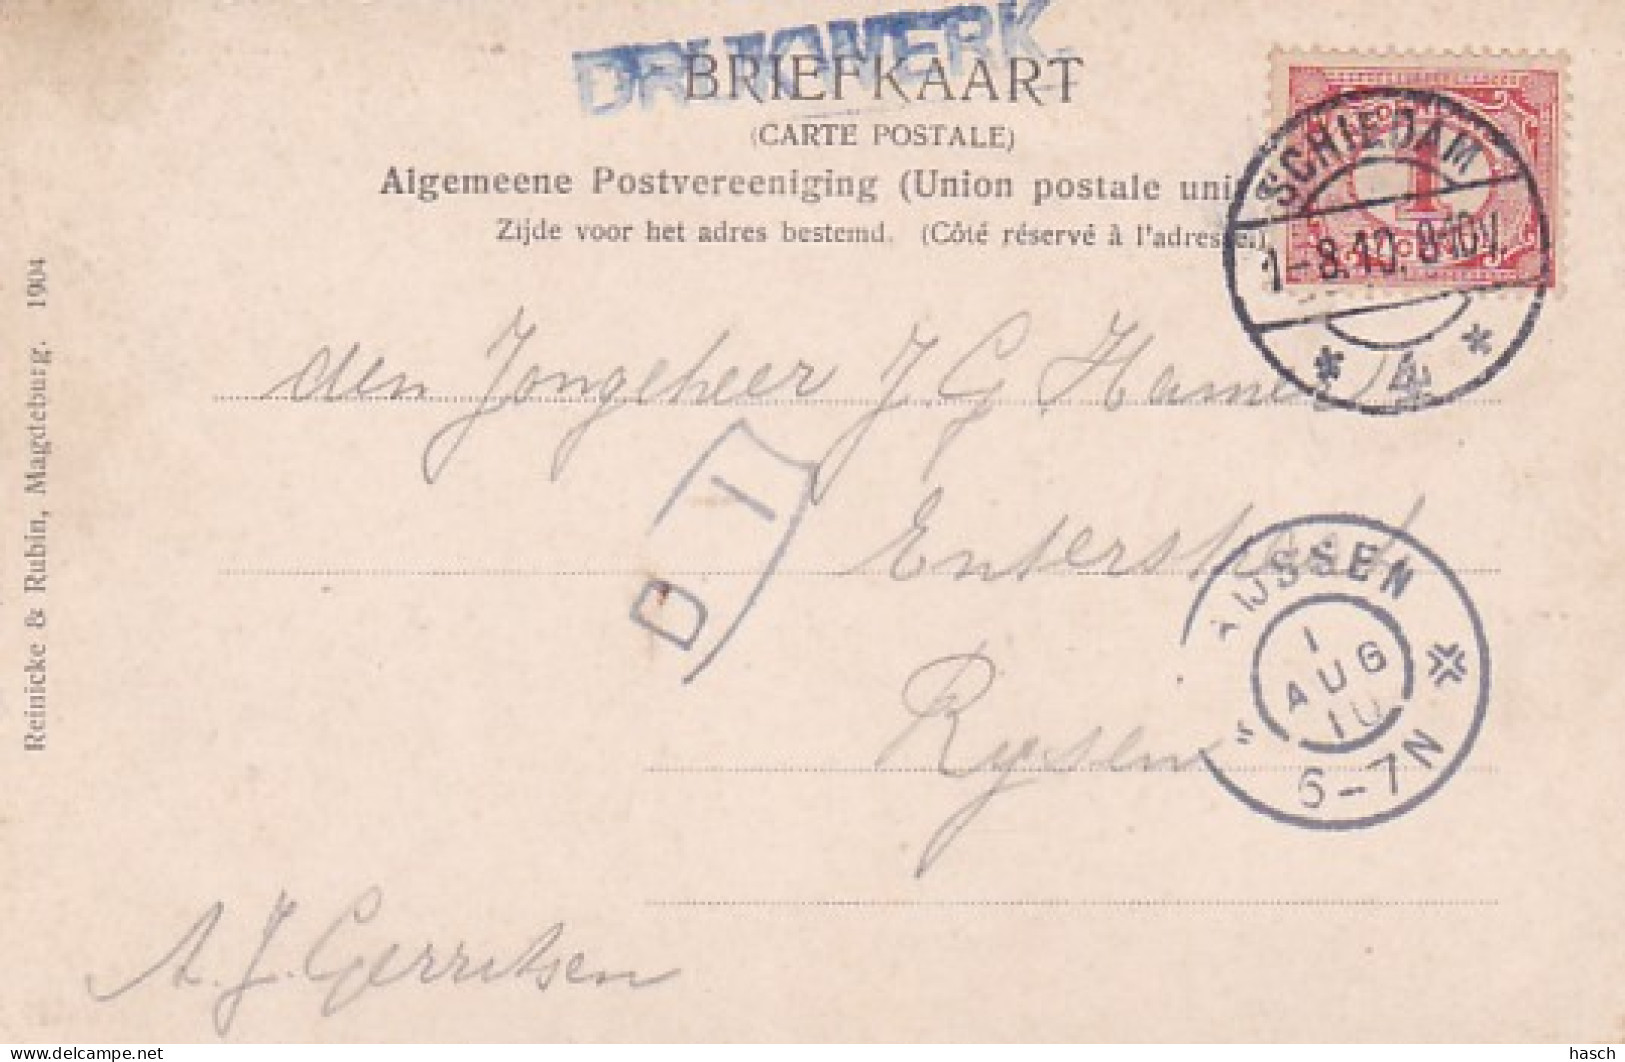 DRUKWERK.
BRIEFKAART
(CARTE POSTALE)
Algemeene Postvereeniging (Union postale uni
Zijde voor het adres bestemd. (Côté réservé à l'adresse)
SCHIEDAM
1-8.10. 8-10V.
* 4 *
1
den Jongeheer J. G. Hamer
D I
Enterstraat
Rysen
RIJSSEN
1
AUG
10
6-7N
A. J. Gerritsen
Reinicke & Rubin, Magdeburg. 1904
hasch
delcampe.net